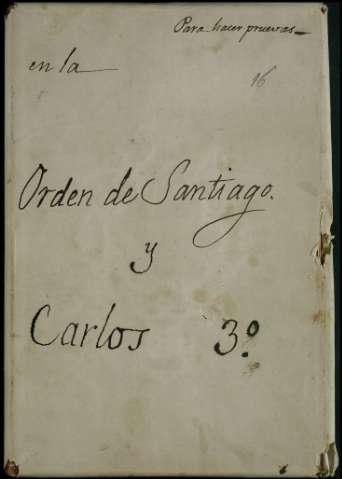 Para hacer pruevas
en la
16
Orden de Santiago.
y
Carlos 3.º